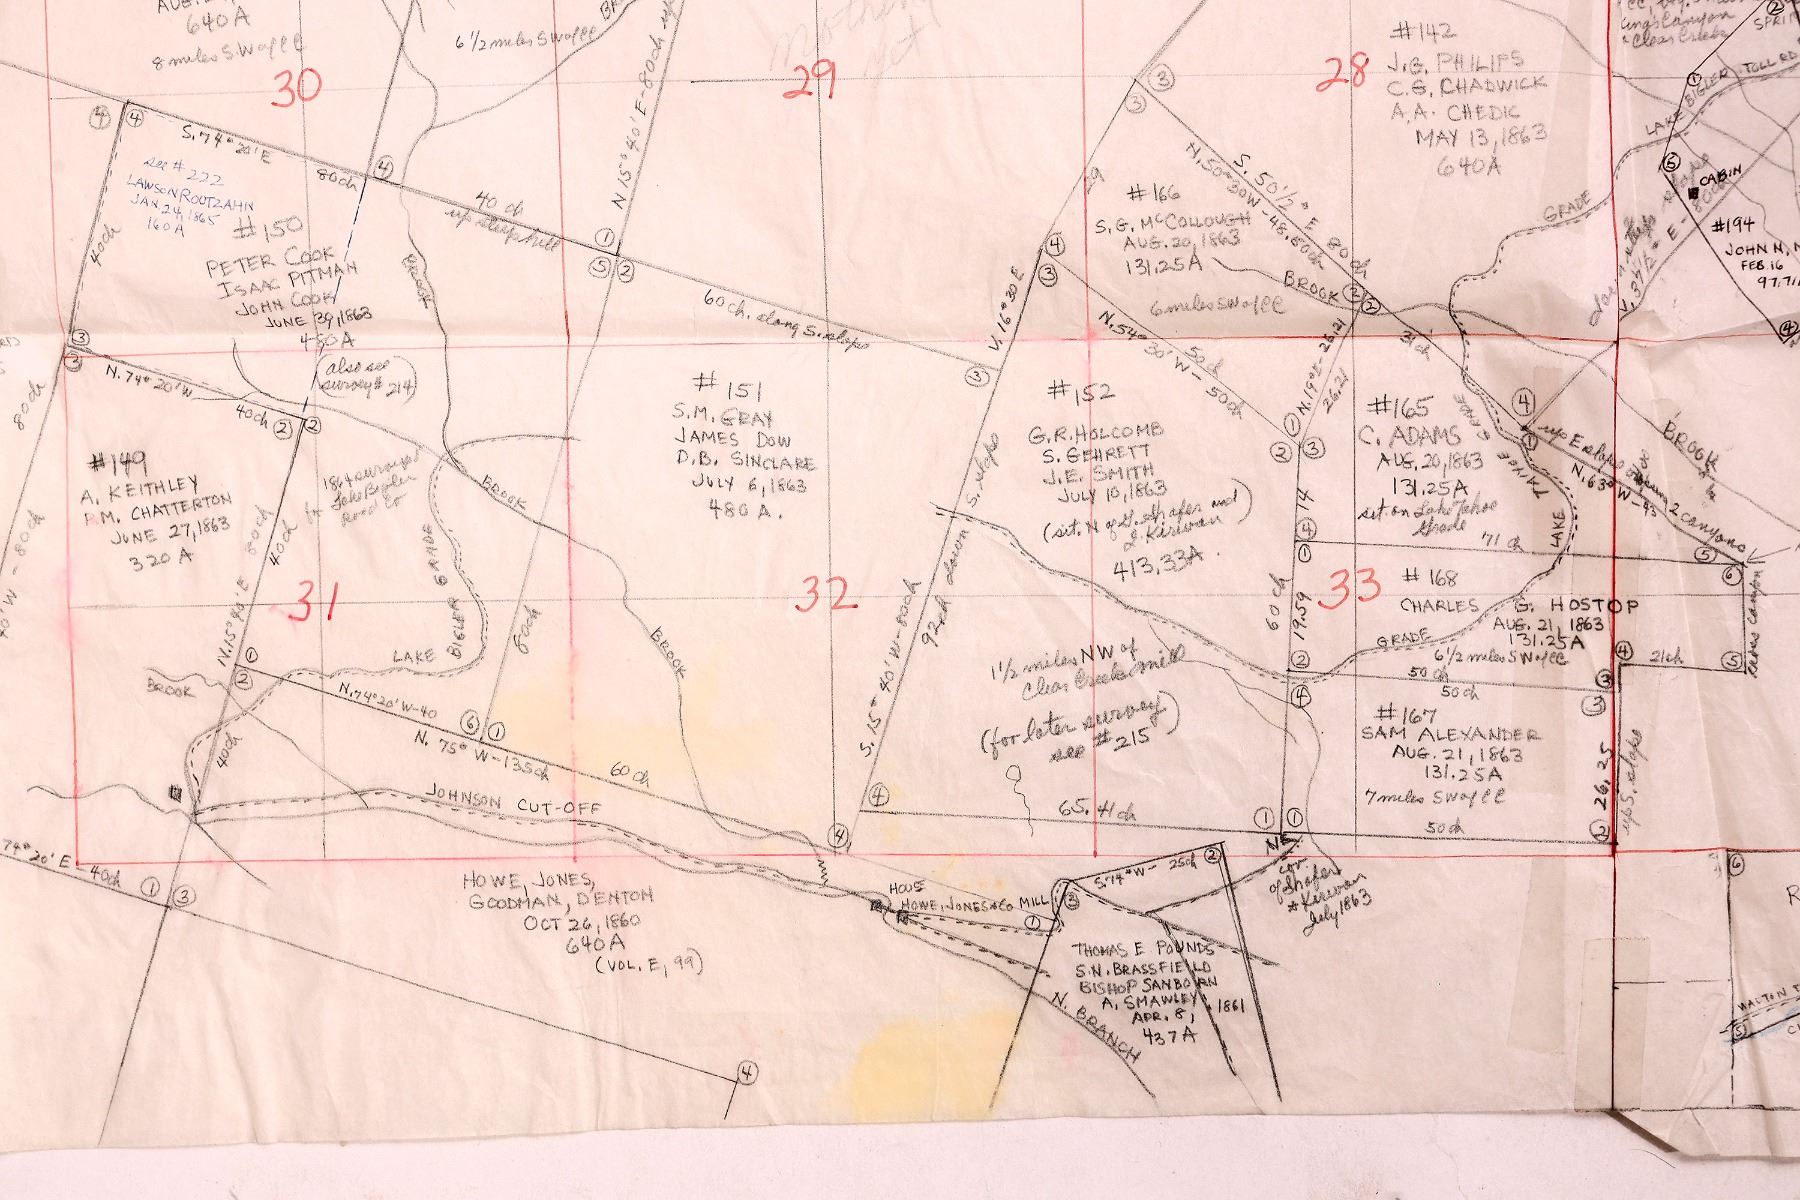 640 A
8 miles SW of CC
6 1/2 miles SW of CC
BROOK
Nothing
yet
30
29
28
#142
J.G. PHILIPS
C.G. CHADWICK
A.A. CHEDIC
MAY 13, 1863
640 A
King's Canyon
"Clear Creek
SPRIN
LAKE BIGLER TOLL RD
CABIN
#194
JOHN N.
FEB. 16
97.71
S. 74° 20' E
80 ch
40 ch
up steep hill
N 15° 40' E - 80 ch up
60 ch. along S. slope
see #222
LAWSON ROUTZAHN
JAN. 24, 1865
160 A
#150
PETER COOK
ISAAC PITMAN
JOHN COOK
JUNE 29, 1863
480 A
(also see
survey # 214)
40 ch
BROOK
#166
S.G. McCOLLOUGH
AUG. 20, 1863
131.25 A
6 miles SW of CC
BROOK
S. 50 1/2° E 80 ch
N. 50° 30' W - 48.80 ch
N. 54° 30' W - 50 ch
50 ch
V. 16° 30' E
29
GRADE
31 ch
N. 19° E - 26.21
26.21
N. 74° 20' W
40 ch
80 ch
#149
A. KEITHLEY
P.M. CHATTERTON
JUNE 27, 1863
320 A
1864 surveyed
for Lake Bigler
Road Co
BROOK
#151
S.M. GRAY
JAMES DOW
D.B. SINCLARE
JULY 6, 1863
480 A.
#152
G.R. HOLCOMB
S. GEHRETT
J.E. SMITH
JULY 10, 1863
(sit. N of G. Shafer and
J. Kirwan)
413.33 A.
#165
C. ADAMS
AUG, 20, 1863
131.25 A
sit. on Lake Tahoe
Grade
LAKE TAHOE GRADE
BROOK
up E slope
2 canyons
N. 63° W - 93
14
71 ch
31
32
33
N. 15° 40' E 80 ch
40 ch
LAKE BIGLER GRADE
80 ch
BROOK
S. 15° 40' W - 80 ch
92 ch down S. slope
60 ch
19.59
#168
CHARLES G. HOSTOP
AUG. 21, 1863
131.25 A
6 1/2 miles SW of CC
GRADE
21 ch
across canyon
50 ch
50 ch
1 1/2 miles NW of
Clear Creek mill
(for later survey
see #215)
#167
SAM ALEXANDER
AUG. 21, 1863
131.25 A
7 miles SW of CC
26.25
up S. slope
50 ch
BROOK
40 ch
N. 74° 20' W - 40
N. 75° W - 135 ch
60 ch
65.41 ch
JOHNSON CUT-OFF
74° 20' E - 40 ch
HOWE, JONES,
GOODMAN, DENTON
OCT 26, 1860
640 A
(VOL. E, 99)
HOUSE
HOWE, JONES & CO MILL
S. 74° W - 25 ch
NE
cor
of Shafer
& Kirwan
July 1863
THOMAS E POUNDS
S.N. BRASSFIELD
BISHOP SANBORN
A. SMAWLEY
APR. 8, 1861
437 A
N. BRANCH
WALTON